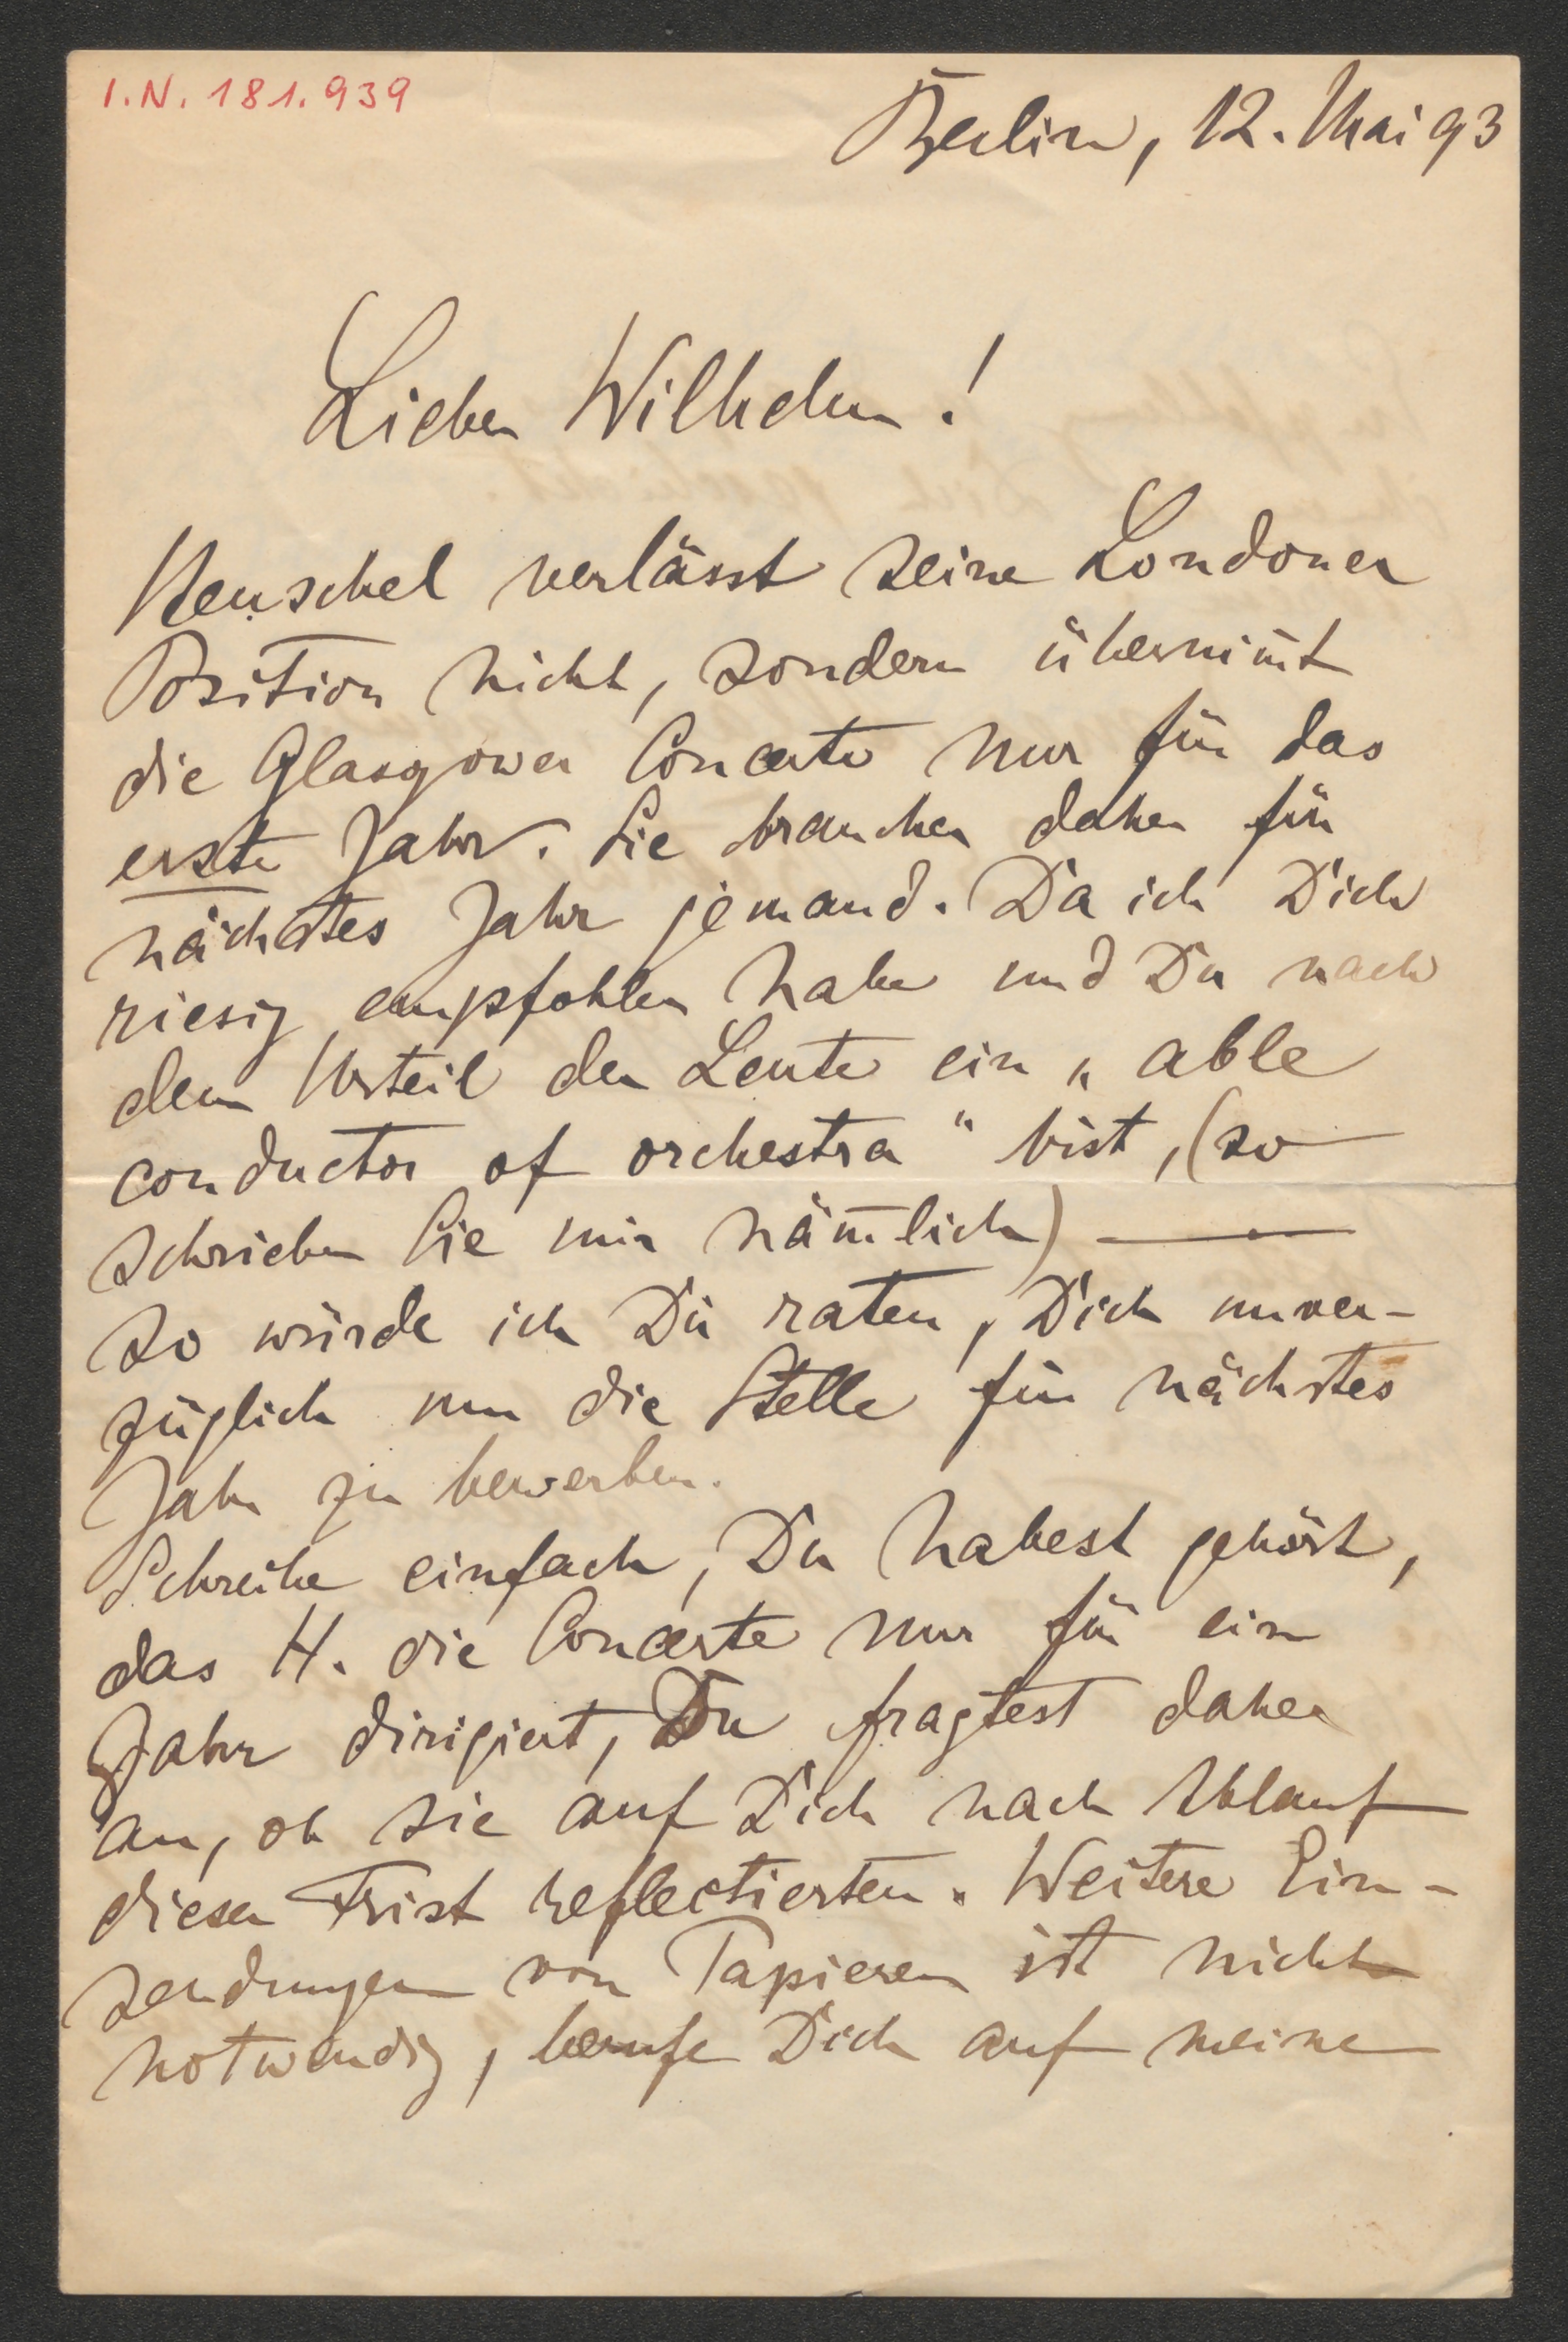 I.N. 181.939
Berlin, 12. Mai 93
Lieber Wilhelm!
Henschel verlässt seine Londoner
Position nicht, sondern übernim̄t
die Glasgower Concerte nur für das
erste Jahr. Sie brauchen daher für
nächstes Jahr jemand. Da ich Dich
riesig empfohlen habe und Du nach
dem Urteil der Leute ein „able
conductor of orchestra“ bist, (so
schrieben Sie mir näm̄lich) —
so würde ich Dir raten, Dich unver-
züglich um die Stelle für nächstes
Jahr zu bewerben.
Schreibe einfach, Du habest gehört,
das H. die Concerte nur für ein
Jahr dirigiert, Du fragtest daher
an, ob sie auf Dich nach Ablauf
dieser Frist reflectierten. Weitere Ein-
sendungen von Papieren ist nicht
notwendig, berufe Dich auf meine